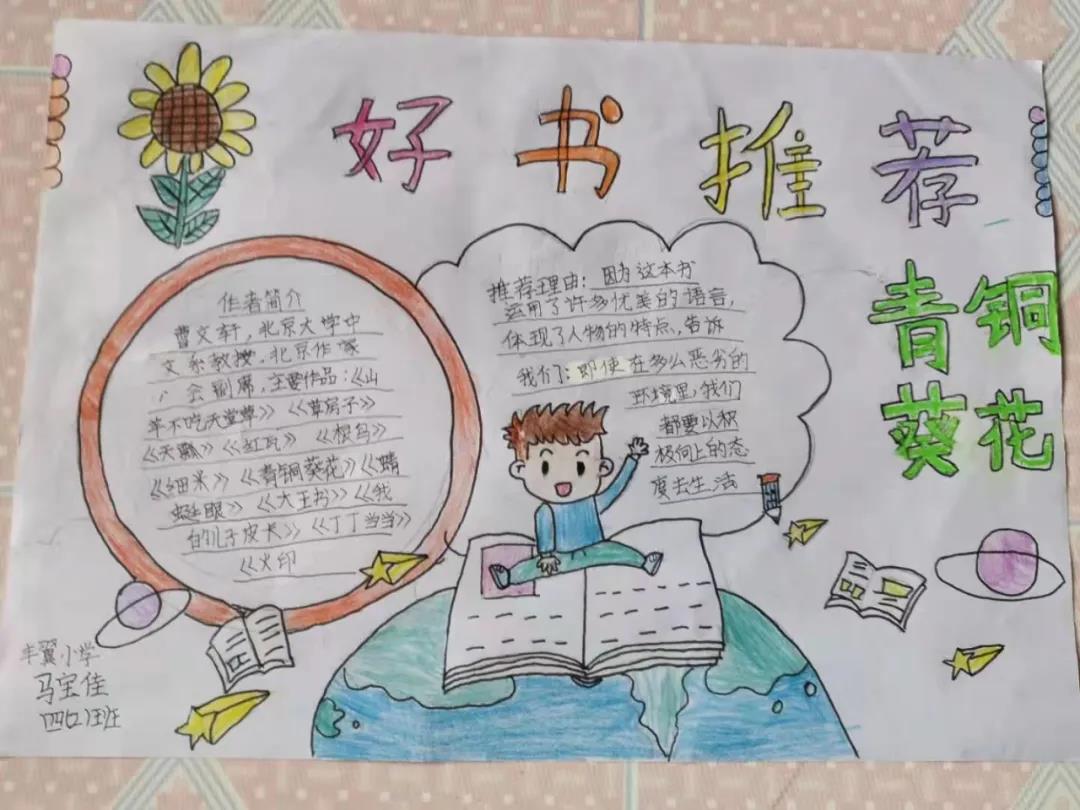 好书推荐
青铜
葵花
作者简介
曹文轩，北京大学中
文系教授，北京作家
会副席，主要作品：《山
羊不吃天堂草》《草房子》
《天瓢》《红瓦》《根鸟》
《细米》《青铜葵花》《蜻
蜓眼》《大王书》《我
的儿子皮卡》《丁丁当当》
《火印
推荐理由：因为这本书
运用了许多优美的语言，
体现了人物的特点，告诉
我们：即使在多么恶劣的
环境里，我们
都要以积
极向上的态
度去生活
丰翼小学
马宝佳